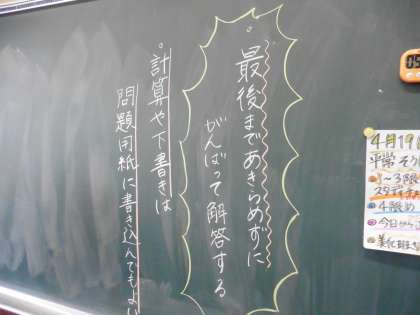 。最後まであきらめずに
がんばって解答する
。計算や下書きは
問題用紙に書き込んでもよい
05
4月19日
平常
1～3限
4限め
今日から